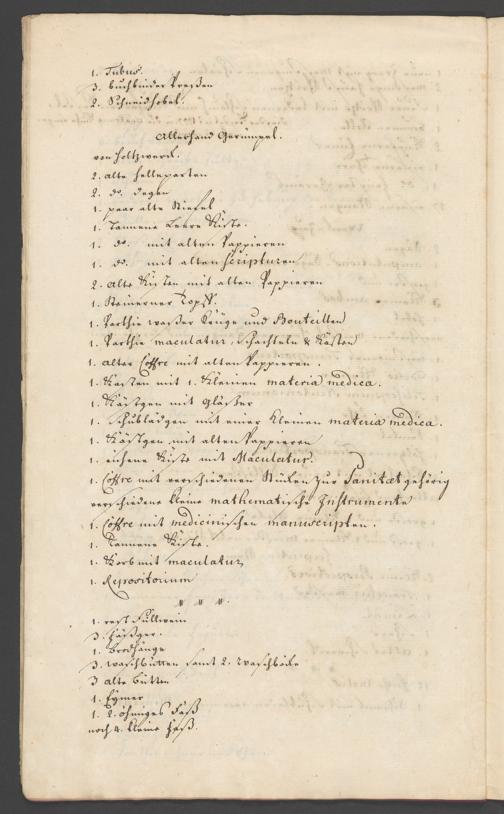 1. Tubus.
3. buchbinder Preßen
2. Schneidhobel.
Allerhand Gerümpel.
von Holtzwerck.
2. alte helleparten
2. do. degen
1. paar alte Stiefel
1. Tannene Leere Kiste.
1. do. mit alten Pappieren
1. do. mit alten scripturen
2. alte Kisten mit alten Pappieren
1. Steinerner Topff.
1. Parthie waßer Krüge und Bouteillen
1. Parthie maculatur, Schachteln & Kästen
1. alter Coffre mit alten Pappieren.
1. Kasten mit 1. kleinen materia medica.
1. Kästgen mit gläßer
1. Schubladgen mit einer kleinen materia medica.
1. Kästgen mit alten Pappieren
1. eichene Kiste mit Maculatur.
1. Coffre mit verschiedenen Stücken zur Sanitæt gehörig
verschiedene kleine mathematische Instrumente
1. Coffre mit medicinischen manuscripten.
1. Tannene Kiste.
1. Korb mit maculatur
1. Repositorium
1. rest Füllwein
3. Fäßger.
1. Brodhänge
3. waschbütten samt 2. waschböcke
3 alte bütten
1. Eymer
1. 2. öhmiges Faß
noch 4. kleine Faß.